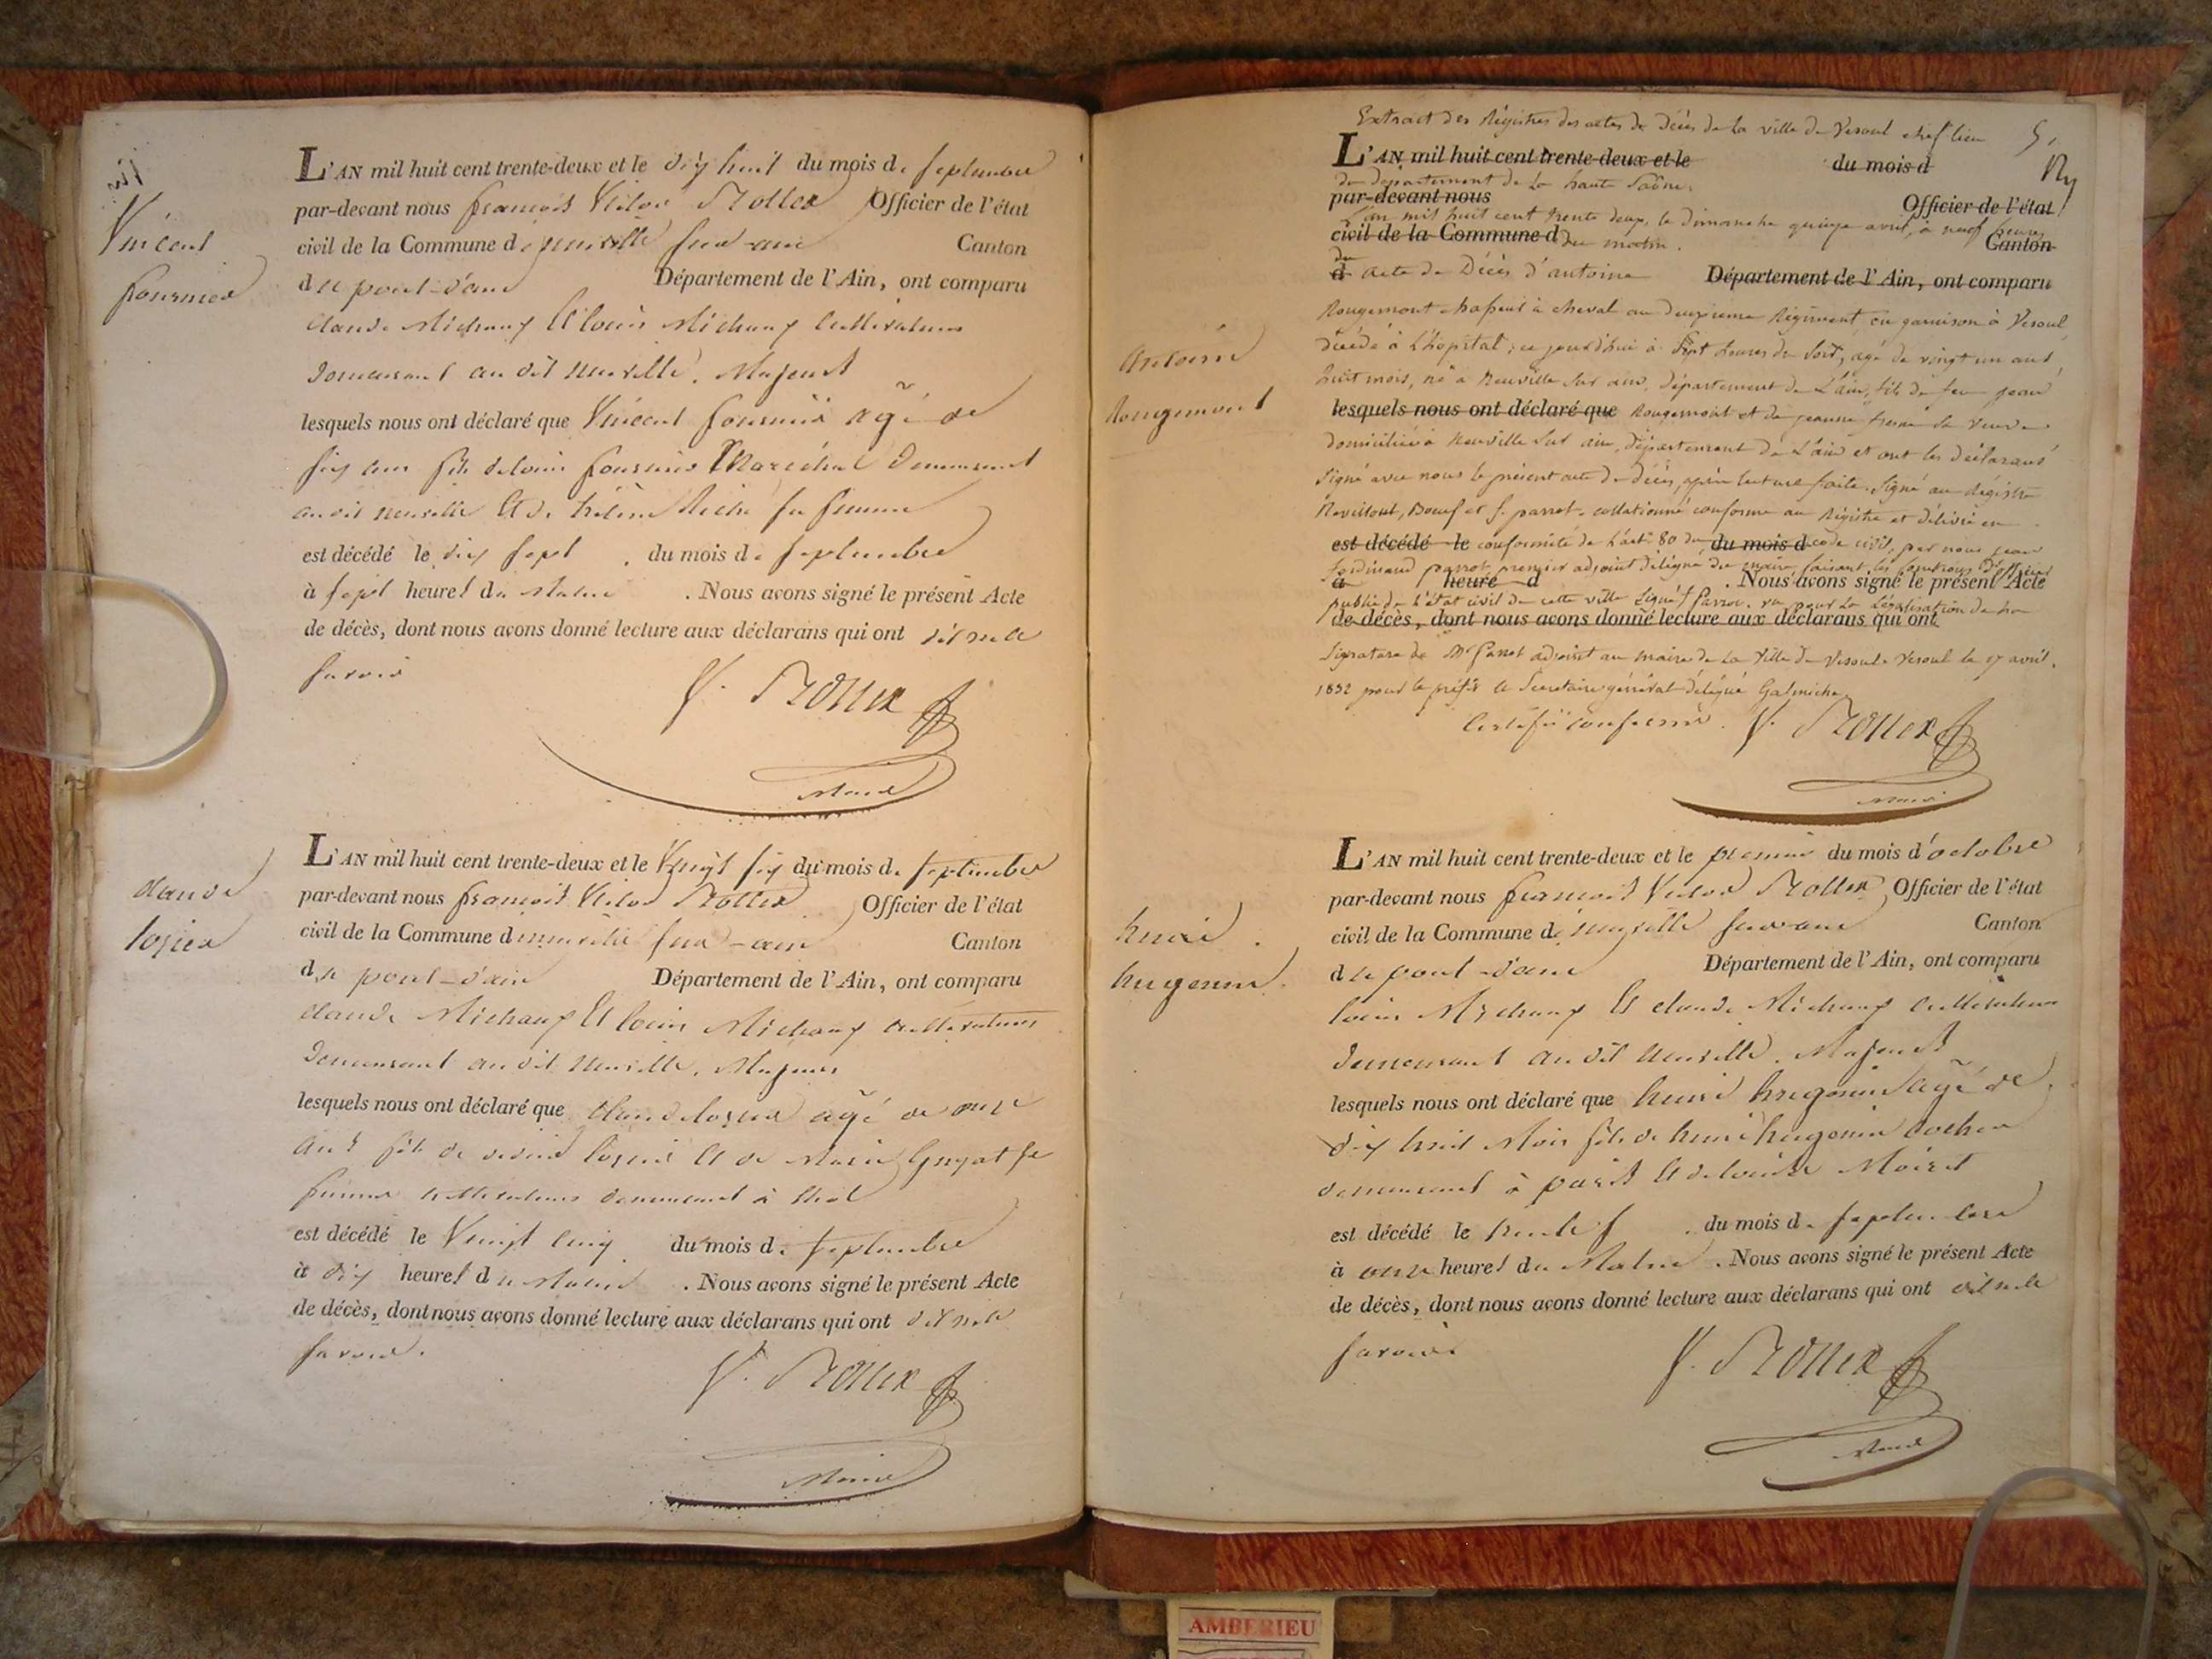 Vincent
fournier
L'AN mil huit cent trente-deux et le dix huit du mois de septembre
par-devant nous françois Victor Officier de l'état
civil de la Commune de neuville sur-ain Canton
de pont-d'ain Département de l'Ain, ont comparu
claude Michaux Et louis Michaux cultivateurs
demeurant au dit neuville. Majeurs
lesquels nous ont déclaré que Vincent fournier agé de
six ans fils de louis fournier Maréchal demeurant
au dit neuville Et de sa femme
est décédé le dix sept du mois de septembre
à sept heures du Matin . Nous avons signé le présent Acte
de décès, dont nous avons donné lecture aux déclarans qui ont dit ne le
savoir
Maire
claude
L'AN mil huit cent trente-deux et le Vingt six du mois de septembre
par-devant nous françois Victor Officier de l'état
civil de la Commune de neuville sur-ain Canton
de pont-d'ain Département de l'Ain, ont comparu
claude Michaux Et louis Michaux cultivateurs
demeurant au dit Neuville. Majeurs
lesquels nous ont déclaré que claude agé de onze
ans fils de Et de Marie Guyat sa
femme cultivateurs demeurant à
est décédé le Vingt cinq du mois de septembre
à dix heures du Matin . Nous avons signé le présent Acte
de décès, dont nous avons donné lecture aux déclarans qui ont dit ne le
savoir.
Maire
5,
Extract des Régistres des actes de Décès de la ville de Vesoul chef lieu
L'AN mil huit cent trente-deux et le du mois d
du département de la haute Saône.
par-devant nous Officier de l'état
L'an mil huit cent trente deux, le Dimanche quinze avril, à neuf heures
civil de la Commune d du matin. Canton
d acte de Décès d'antoine Département de l'Ain, ont comparu
Antoine
Rougemont
Rougemont chasseur à cheval au deuxième Régiment en garnison à Vesoul
décédé à l'hopital, ce jourd'hui à sept heures du soir, agé de vingt un ans
huit mois, né à Neuville sur ain, département de L'ain, fils de feu jean
lesquels nous ont déclaré que Rougemont et de jeanne sa veuve
domiciliée à Neuville sur ain, département de L'ain et ont les déclarans
signé avec nous le présent acte de décès, après lecture faite. Signé au Régistre
Boeuf et f. parrot. collationné conforme au Régistre et délivré en
est décédé le conformité de l'art. 80 du du mois d code civil, par nous jean
ferdinand parrot premier adjoint délégué du maire, faisant les fonctions d'officier
à heure d . Nous avons signé le présent Acte
public de l'état civil de cette ville signé f Parrot. vu pour la légalisation de la
de décès, dont nous avons donné lecture aux déclarans qui ont
signature de Mr Parrot adjoint au maire de la Ville de Vesoul. Vesoul le 17 avril
1832 pour le préfet le Secrétaire général délégué Galmiche
Certifié conforme.
Maire
henri
hugonin.
L'AN mil huit cent trente-deux et le premier du mois d'octobre
par-devant nous françois Victor Officier de l'état
civil de la Commune de neuville sur ain Canton
de pont-d'ain Département de l'Ain, ont comparu
louis Michaux Et claude Michaux cultivateurs
demeurant au dit neuville. Majeurs
lesquels nous ont déclaré que henri hugonin agé de
dix huit Mois fils de henri hugonin cocher
demeurant à paris Et de louise Moiret
est décédé le trente du mois de septembre
à onze heures du Matin . Nous avons signé le présent Acte
de décès, dont nous avons donné lecture aux déclarans qui ont dit ne le
savoir
Maire
AMBERIEU